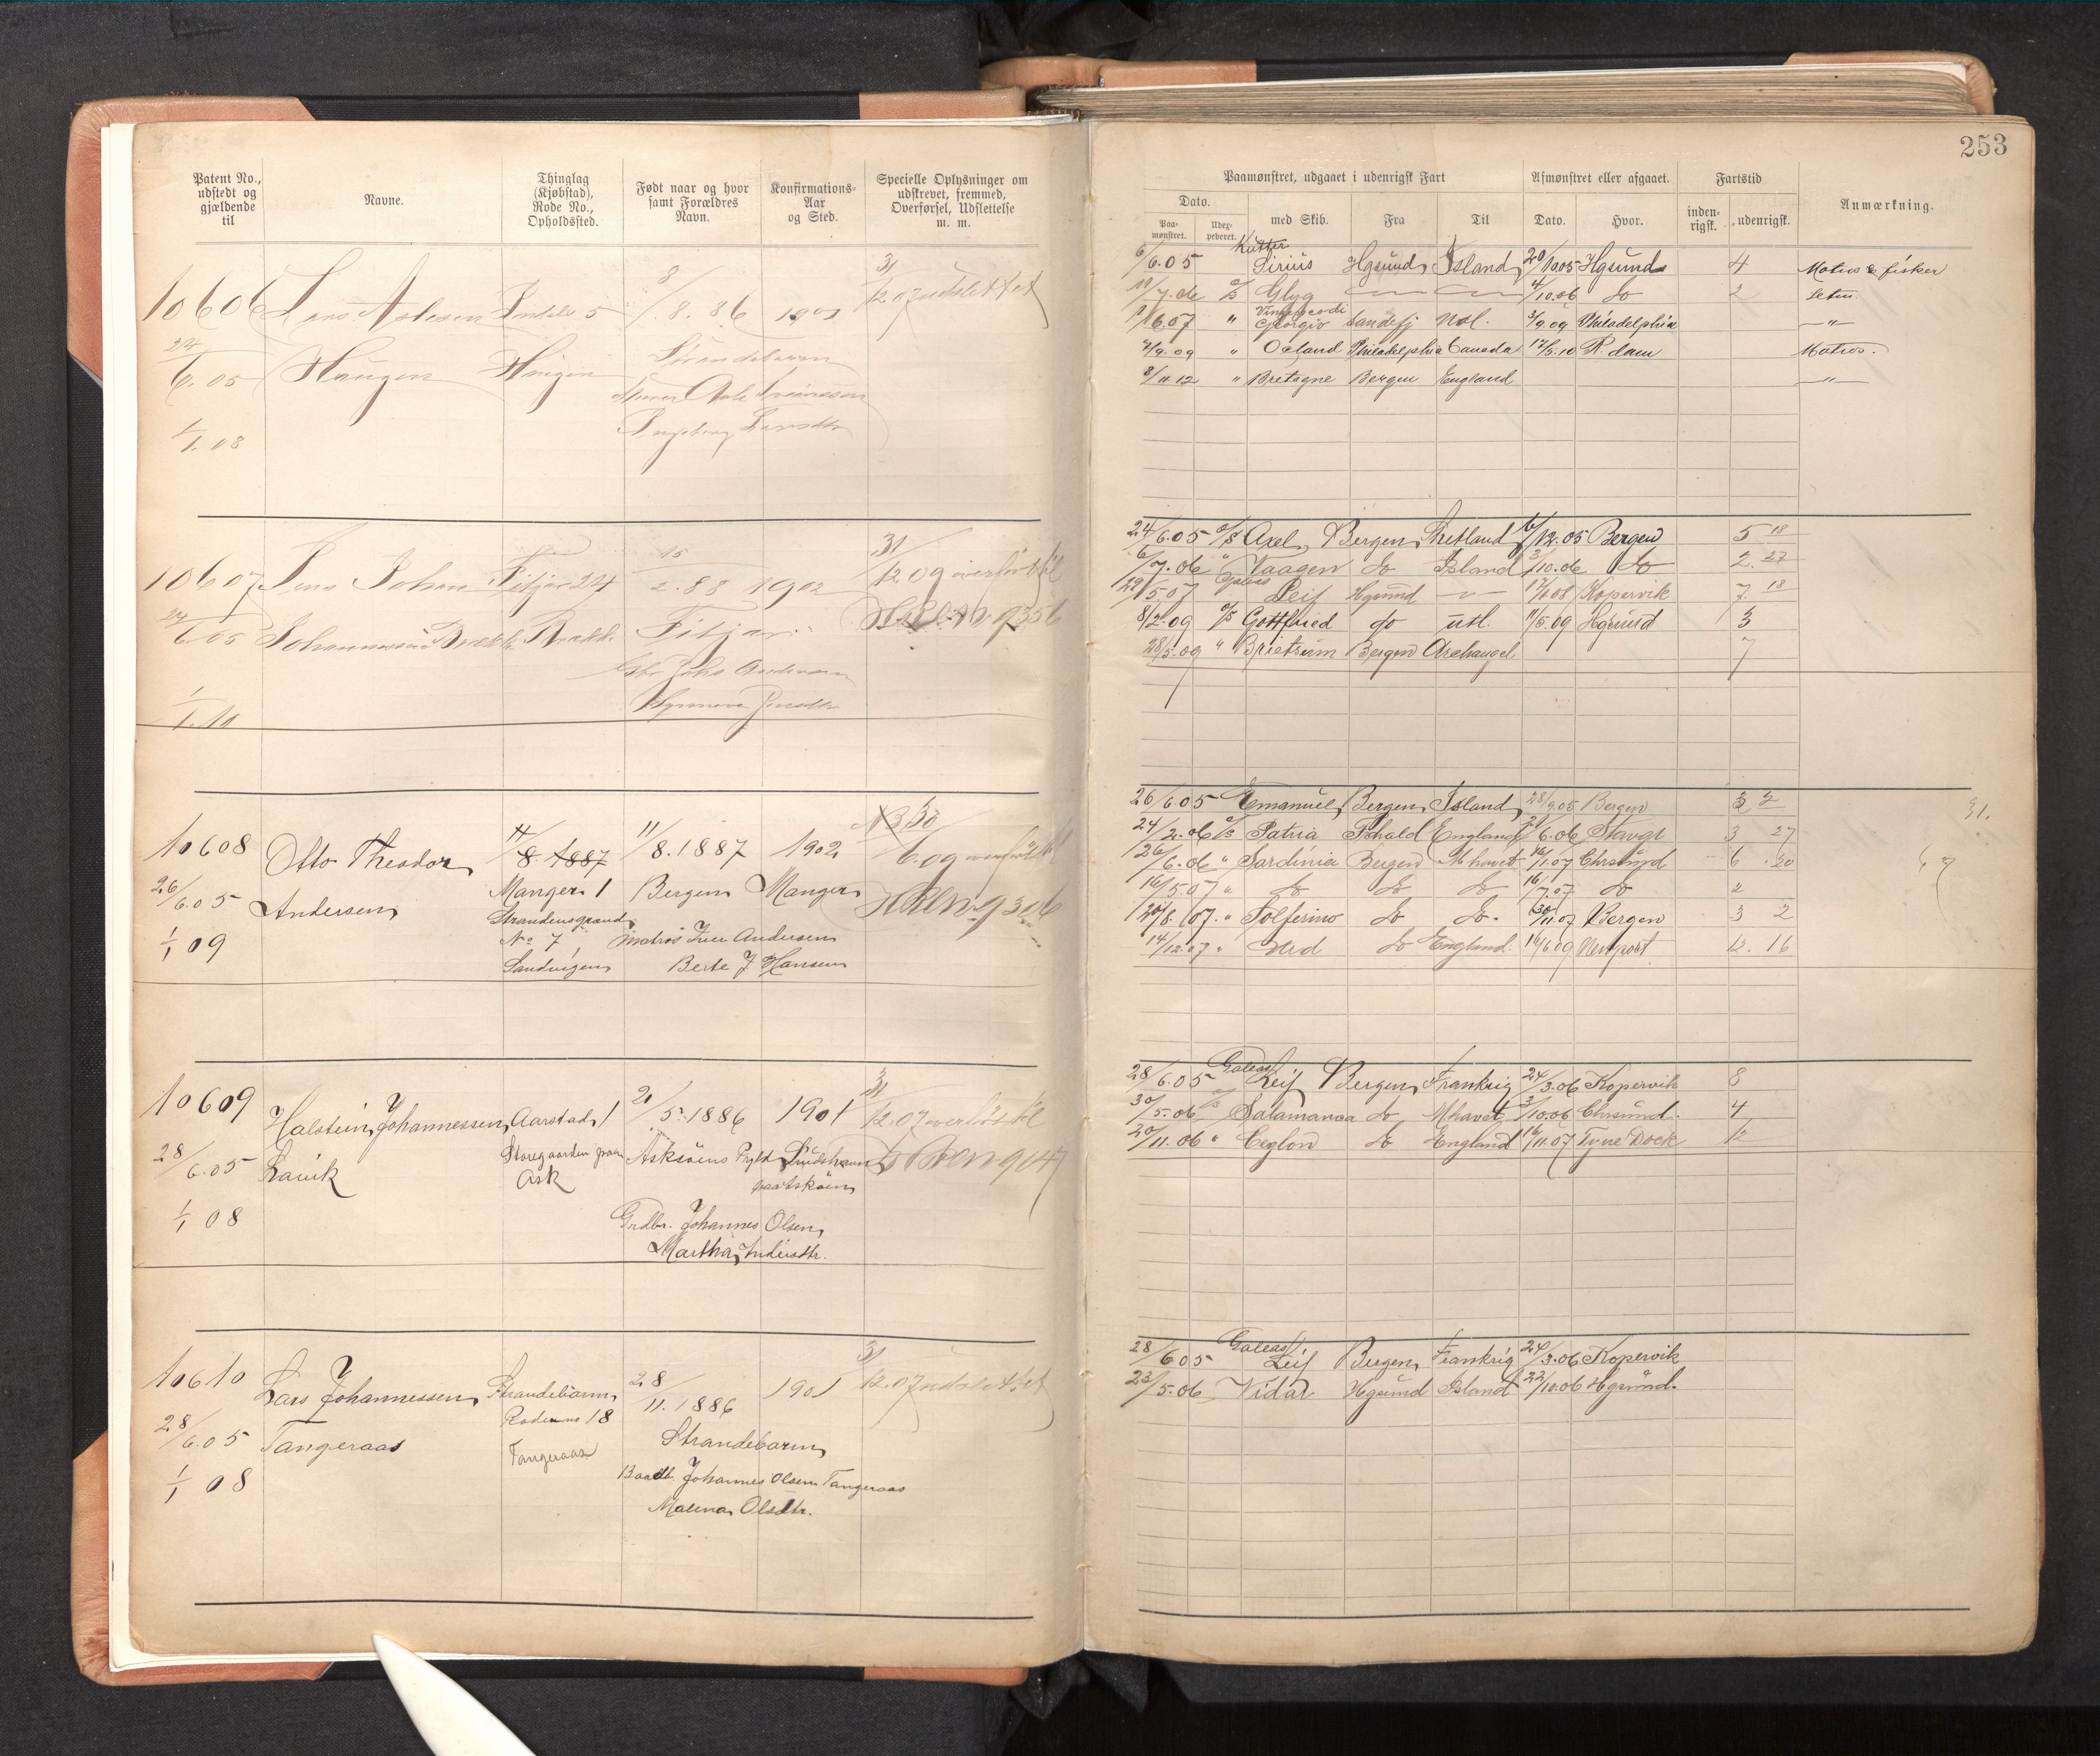 253
Patent No., udstedt og gjældende til
Navne.
Thinglag (Kjøbstad), Rode No., Opholdssted.
Født naar og hvor samt Forældres Navn.
Konfirmations-Aar og Sted.
Specielle Oplysninger om udskrevet, fremmed, Overførsel, Udslettelse m. m.
Paamønstret, udgaaet i udenrigsk Fart
Dato.
Paa-mønstret.
Uder-pederet.
med Skib.
Fra
Til
Afmønstret eller afgaaet.
Dato.
Hvor.
Fartstid
inden-rigsk.
udenrigsk.
Anmærkning.
10606
24/6.05
1/1.08
Haugen
8/8.86
1901
Strandebarm
31/12.07 udslettet
6/6.05 Kutter Sirius Hgsund Island 20/10.05 Hgsund 4 Matros & fisker
19/7.06 Glyg 4/10.06 do 2 Letm.
1/6.07 " Sandefj. Ndl. 3/9.09 Philadelphia —"—
4/9.09 " Philadelphia Canada 12/5.10 R.dam Matros.
8/11.12 " Bretagne Bergen England —"—
10607 Jens Johan
24/6.05 Johannessen
1/1.10
Fitjar 24
15/2.88 1902
Fitjar
31/12.09 overført til
24/6.05 D/S Axel Bergen Shetland 6/12.05 Bergen 5 18
6/7.06 " Vaagen do Island 3/10.06 do 2 27
22/5.07 Galeas Leif Hgsund 17/1.08 Kopervik 7 18
8/2.09 D/S Gottfried do utl. 11/5.09 Hgsund 3
28/5.09 " Bergen Archangel 7
10608 Otto Theodor
26/6.05 Andersen
1/1 09
11/8.1887
Manger 1
Strandensgrand
No 7
Sandvigen
11/8.1887 1902
Bergen Manger
Matros Iver Andersen
Berte J Hansen
30/6.09 overført til
26/6.05 Emanuel Bergen Island 28/9.05 Bergen 3 2
24/2.06 D/S Patria Fshald England 21/6.06 Stavgr 3 27
26/6.06 " Sardinia Bergen Mhavet 16/1.07 Chrsund 6 20
16/5.07 " do do do 16/7.07 do 2
20/8.07 " Solferino do do. 30/11.07 Bergen 3 2
14/12.07 " Ard do England 14/6.09 Newport 12. 16
10609 Halstein Johannessen
28/6.05 Lavik
1/1 08
Aarstad 1
Storegaarden paa
Ask
21/5.1886 1901
Askøens Pgld
Grdbr. Johannes Olsen,
Martha Andersdtr.
31/12.07 overført til
28/6.05 Galeas Leif Bergen Frankrig 24/3.06 Kopervik 8
30/5.06 D/S Salamanca do Mhavet 3/10.06 Chrsund. 4
20/11.06 " Eeglon do England 16/11.07 Tyne Dock 12
10610 Lars Johannessen
28/6.05 Tangeraas
1/1 08
Strandebarm
Rode no 18
Tangeraas
28/11.1886 1901
Strandebarm
Baadb. Johannes Olsen Tangeraas
Malena Olsdtr.
31/12.07 udslettet
28/6.05 Galeas Leif Bergen Frankrig 24/3.06 Kopervik
23/5.06 Vidar Hgsund Island 22/10.06 Hgsund.